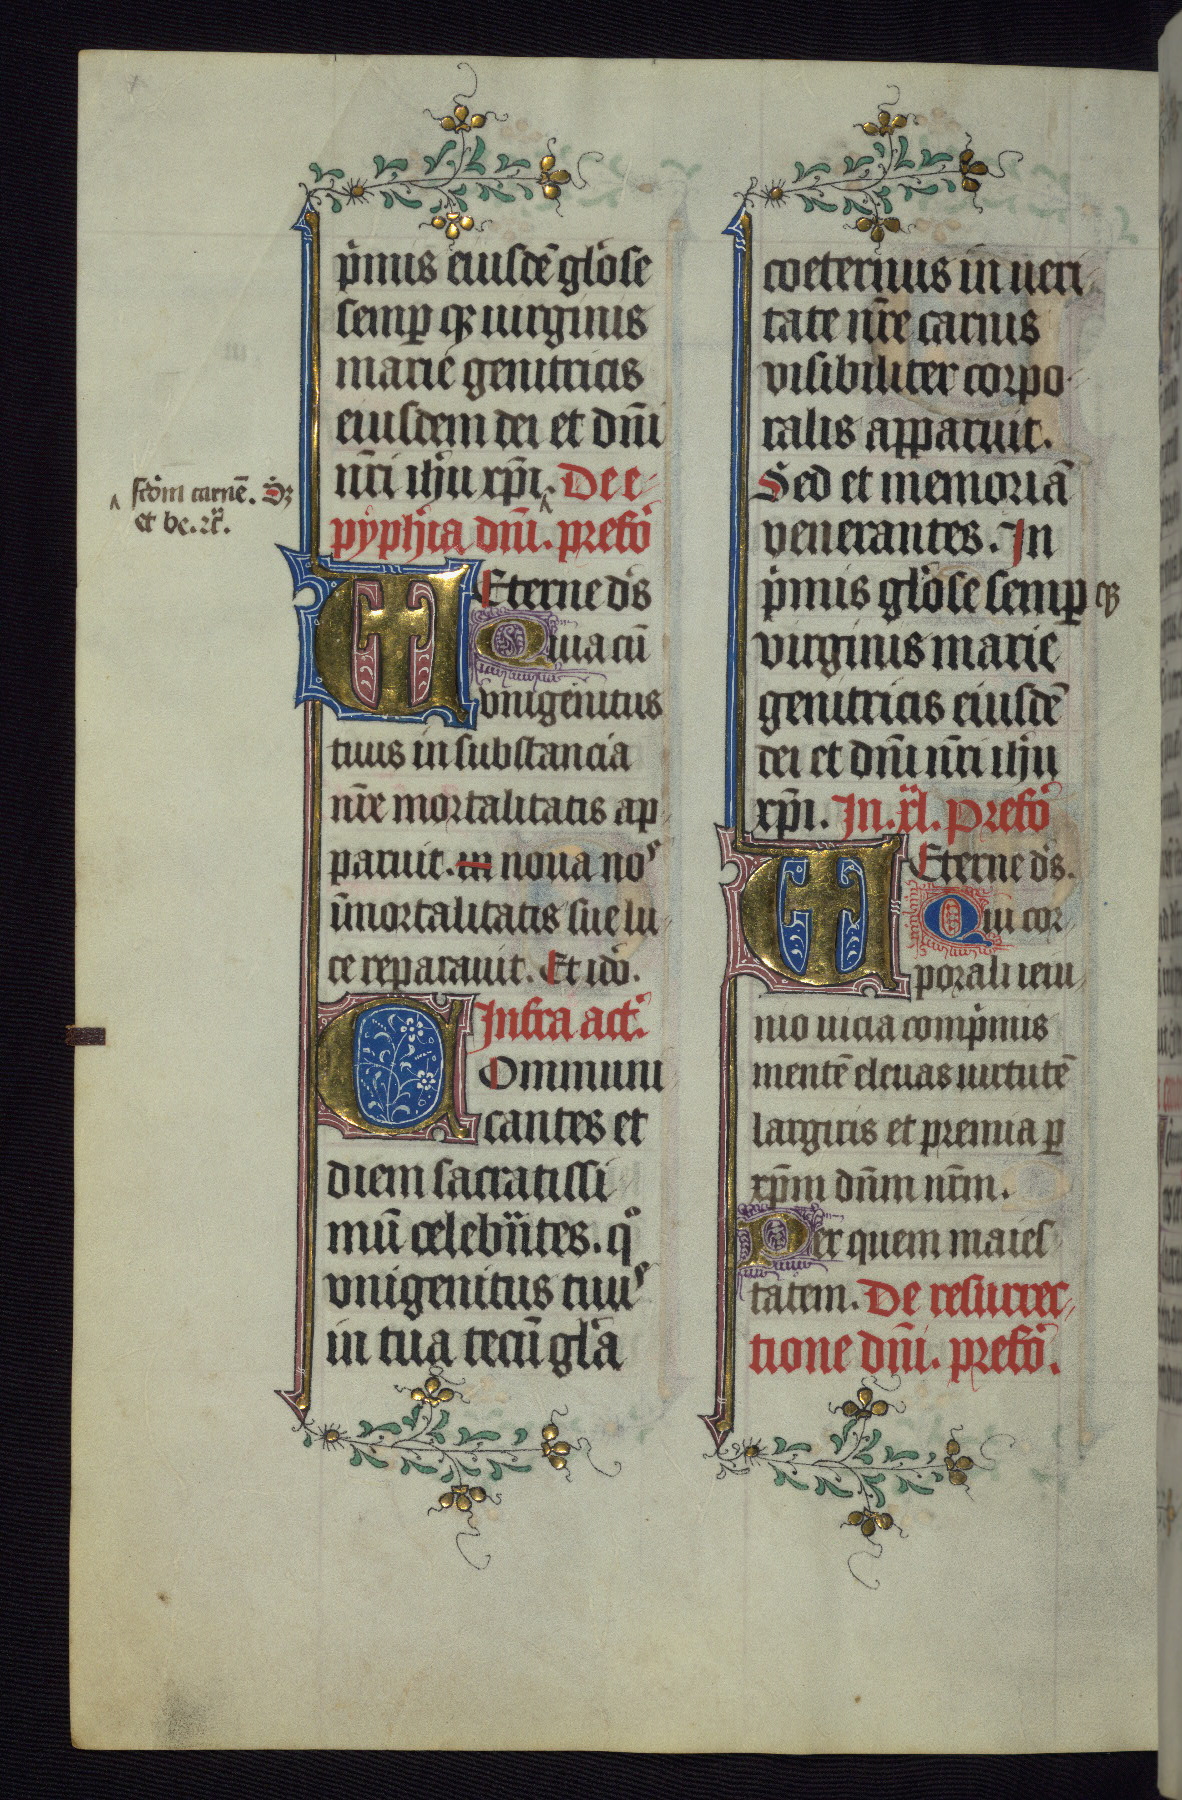 p̄mus eiusdē glōse
semꝑ qꝫ uirginis
marie genitricis
eiusdem dei et dn̄i
nr̄i ih̄u xp̄i. De e-
scd̄m carnē. Sꝫ
et be. rͣ.
pyph̄ia dn̄i. prefō
Eterne ds̄
Quia cū
vnigenitus
tuus in substancia
nr̄e mortalitatis ap-
paruit. in noua noˢ
īmortalitatis sue lu-
ce reparauit. Et idō.
Infra act̄.
Communi
cantes et
diem sacratissi
mū celebrātes. qͦ
vnigenitus tuuˢ
in tua tecū glā
coeternus in ueri-
tate nr̄e carnis
visibiliter corpo-
ralis apparuit.
Sed et memoriā
venerantes. In
p̄mis glōse semꝑ qꝫ
virginis marie
genitricis eiusdē
dei et dn̄i nr̄i ih̄u
xp̄i. In. xl̄. prefō
Eterne ds̄.
Qui cor-
porali ieiu-
nio uicia comp̄mis
mentē eleuas uirtutē
largiris et premia ꝑ
xp̄m dn̄m nr̄m.
Per quem maies
tatem. De resurrec-
tione dn̄i. prefō.